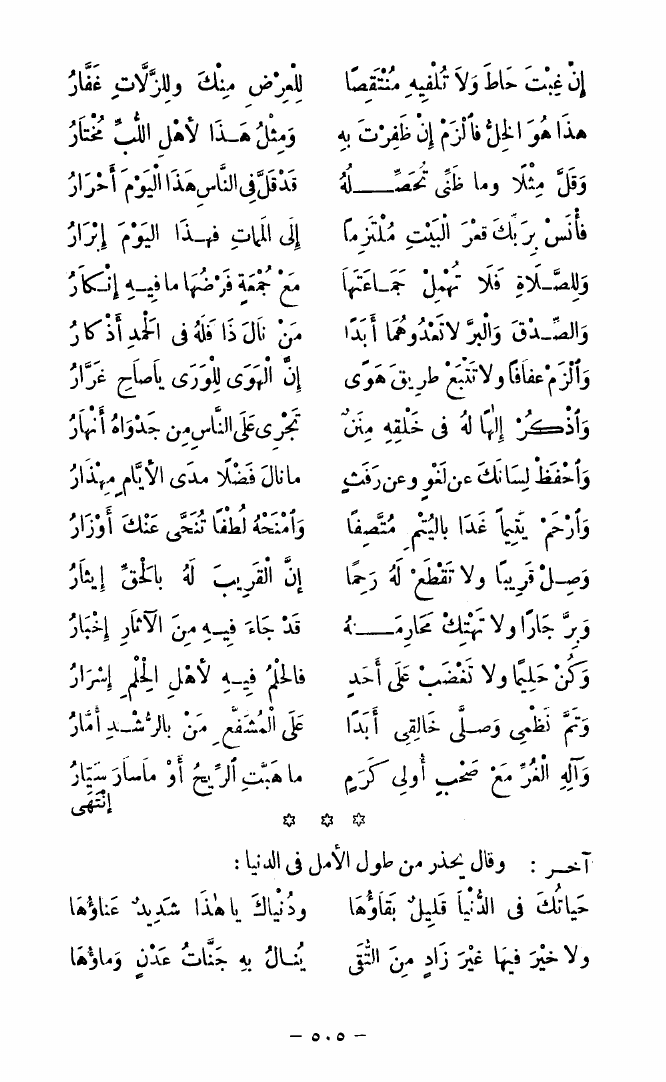 إِنْ غِبْتَ حَاطَ وَلَا تُلْفِيهِ مُنْتَقِصًا لِلْعِرْضِ مِنْكَ وللِزَّلَّاتِ غَفَّارُ
هذا هُوَ الخِلُّ فَالْزَمْ إِنْ ظَفِرْتَ بِهِ وَمِثْلُ هَـذَا لأَهْلِ اللُّبِّ مُخْتَارُ
وَقَلَّ مِثْلًا وما ظَنِّى تُحَصِّـــلُهُ قَدْ قَلَّ فى النَّاسِ هَذَا الْيَوْمَ أَحْرَارُ
فأْنَسْ بِرَبِّكَ قَعْرَ الْبَيْتِ مُلْتَزِمًا إِلَى المَمَاتِ فهـذا اليَوْمَ إِبْرَارُ
وَلِلصَّـلَاةِ فَلَا تُهْمِلْ جَمَـاعَتَهَا مَعْ جُمْعَةٍ فَرْضُهَا ما فيـهِ إِنْـكَارُ
وَالصِّـدْقَ وَالْبِرَّ لا تَعْدُوهُمَا أَبَدًا مَنْ نَالَ ذَا فَلَهُ فى الْحَمْدِ أَذْكارُ
وَالْزَمْ عفَافًا ولا تَتْبَعْ طريقَ هَوًى إِنَّ الْهَوَى لِلْوَرَى ياصَاحِ غَرَّارُ
وَاذْكُرْ إِلٰهًا لهُ فى خَلْقِهِ مِنَنٌ تَجْرِى عَلَى النَّاسِ مِن جَدْوَاهُ أَنْهَارُ
وَاحْفَظْ لِسَانَكَ عن لَغْوٍ وعن رَفَثٍ ما نالَ فَضْلًا مدَى الأَيَّامِ مِهْذَارُ
وَارْحَمْ يَتِيمًا غَدَا باليُتْمِ مُتَّصِفًا وَامْنَحْهُ لُطْفًا تُنَحَّى عَنْكَ أَوْزَارُ
وَصِلْ قَرِيبًا ولا تَقْطَعْ لَهُ رَحِمًا إِنَّ الْقَرِيبَ لَهُ بالحَقِّ إِيثَارُ
وَبِرَّ جَارًا ولا تَهْتِكْ مَحَارِمَـــهُ قَدْ جَاءَ فِيـهِ مِنَ الآثارِ إِخْبَارُ
وَكُنْ حَلِيمًا ولا تَغْضَبْ عَلَى أَحَدٍ فالحلْمُ فِيـهِ لأَهْلِ الحِلْمِ إِسْرَارُ
وَتَمَّ نَظْمِى وَصـلَّى خَالِقِى أَبَدًا عَلَى الْمُشَفَّعِ مَنْ بالرُّشْـدِ أَمَّارُ
وَآلِهِ الْغُرِّ مَعْ صَحْبٍ أُولِى كَرَمٍ ما هَبَّتِ الرِّيحُ أَوْ ماسَارَ سَيَّارُ
إنْتَهَى
آخـر : وقال يحذر من طول الأمل فى الدنيا :
حَياتُكَ فى الدُّنْيَا قَلِيلٌ بَقَاؤُهَا ودُنْياكَ يا هٰذَا شَدِيدٌ عَناؤُهَا
ولا خَيْرَ فِيهَا غَيْرَ زَادٍ مِنَ التُّقَى يُنـالُ بِهِ جَنَّاتُ عَدْنٍ وَماؤُهَا
– ٥٠٥ –